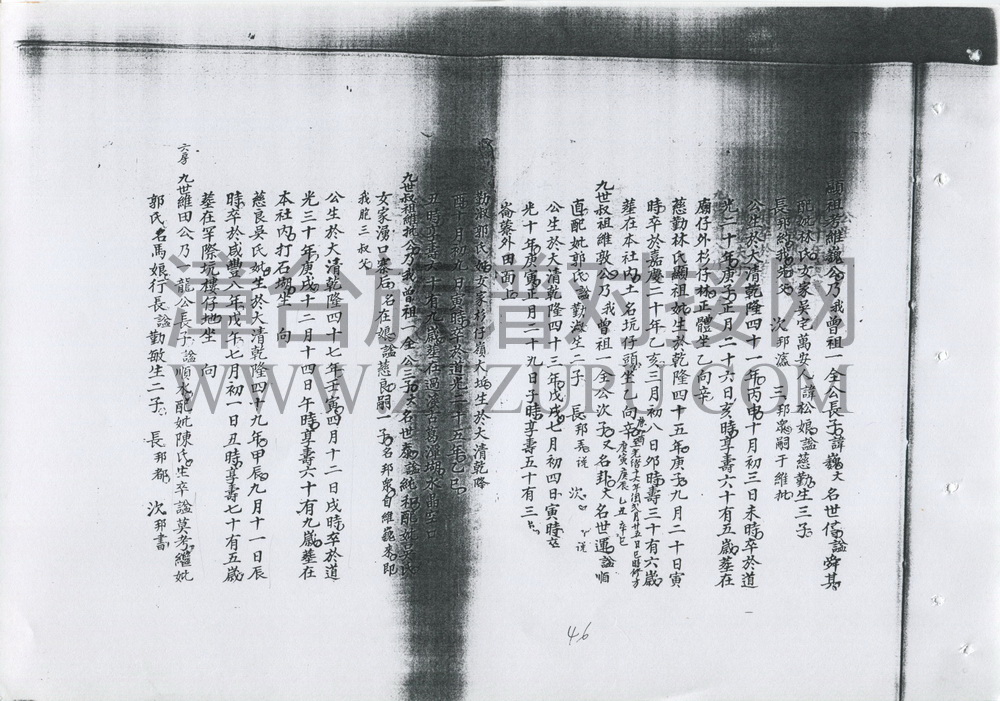 顯祖考維巍公乃我曾祖一全公長子諱巍大名世偣諡舜其
配妣林氏女家吳宅萬安人諱松娘諡慈勤生三子
長邦 次邦瀛 三邦 嗣于維批
公生於大清乾隆四十一年丙申十月初三日未時卒於道
光二十年庚子正月二十六日亥時享壽六十有五歲塟在
廟仔外杉仔林正體坐乙向辛
慈勤林氏顯祖妣生於乾隆四十五年庚子九月二十日寅
時卒於嘉慶二十年乙亥三月初八日夘時壽三十有六歲
塟在本社內土名坑仔頭坐 向
九世叔祖維敦公乃我曾祖一全公次子又名卦大名世運諡順
直配妣郭氏諡勤淑生二子 長邦 次
公生於大清乾隆四十三年戊戌七月初四日寅時卒
光十年庚寅正月二十九日子時享壽五十有三
崙蔡外田面
勤淑郭氏妣女家杉仔嶺大 生於大清乾隆
酉十月初九日寅時卒於道光二十五年乙巳
丑時享壽六十有九歲塟在過
九世叔祖維批公乃我曾祖一全公三子大名世泰諡純和配妣吳氏
女家湧口寨后名在娘諡慈良嗣一子名邦 自維巍來即
我胞三叔父
公生於大清乾隆四十七年壬寅四月十二日戌時卒於道
光三十年庚戌十二月十四日午時享壽六十有九歲塟在
本社內打石 坐 向
慈良吳氏妣生於大清乾隆四十九年甲辰九月十一日辰
時卒於咸豐八年戊午七月初一日丑時享壽七十有五歲
塟在軍際坑樓仔地坐 向
六房 九世維田公乃一龍公長子諡順水配妣陳氏生卒諡莫考繼妣
郭氏名馬娘行長諡勤敏生二子 長邦都 次邦書
46
漳台族谱对接网
WWW.ZTZUPU.COM